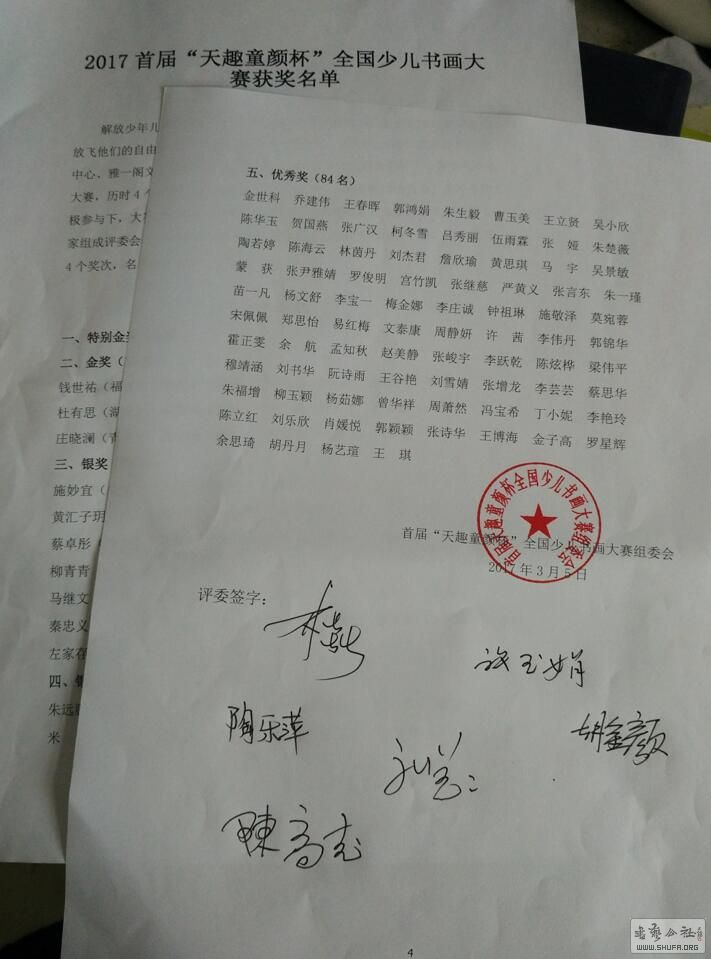 2017 首届“天趣童颜杯”全国少儿书画大
赛获奖名单
解放少年儿
放飞他们的自由
中心、雅一阁文
大赛，历时 4 个
极参与下，大
家组成评委会
4 个奖次，名
一、特别金奖
二、金奖（
钱世祐（福
杜有思（湖
庄晓澜（青
三、银奖
施妙宜（
黄汇子玥
蔡卓彤
柳青青
马继文
秦忠义
左家在
四、
朱远
米
五、优秀奖（84 名）
金世科 乔建伟 王春晖 郭鸿娟 朱生毅 曹玉美 王立贤 吴小欣
陈华玉 贺国燕 张广汉 柯冬雪 吕秀丽 伍雨霖 张 娅 朱楚薇
陶若婷 陈海云 林茵丹 刘杰君 詹欣瑜 黄思琪 马 宇 吴景敏
蒙 获 张尹雅婧 罗俊明 宫竹凯 张继慈 严黄义 张言东 朱一瑾
苗一凡 杨文舒 李宝一 梅金娜 李庄诚 钟祖琳 施敬泽 莫宛蓉
宋佩佩 郑思怡 易红梅 文泰康 周静妍 许 茜 李伟丹 郭锦华
霍正雯 余 航 孟知秋 赵美静 张峻宇 李跃乾 陈炫桦 梁伟平
穆靖涵 刘书华 阮诗雨 王谷艳 刘雪婧 张增龙 李芸芸 蔡思华
朱福增 柳玉颖 杨茹娜 曾华祥 周萧然 冯宝希 丁小妮 李艳玲
陈立红 刘乐欣 肖媛悦 郭颖颖 张诗华 王博海 金子高 罗星辉
余思琦 胡丹月 杨艺瑄 王 琪
首届“天趣童颜杯”全国少儿书画大赛组委会
2017 年 3 月 5 日
首届天趣童颜杯全国少儿书画大赛组委会
评委签字：
张玉娟
陶乐萍
胡金颜
陳高志
4
书艺公社
WWW.SHUFA.ORG